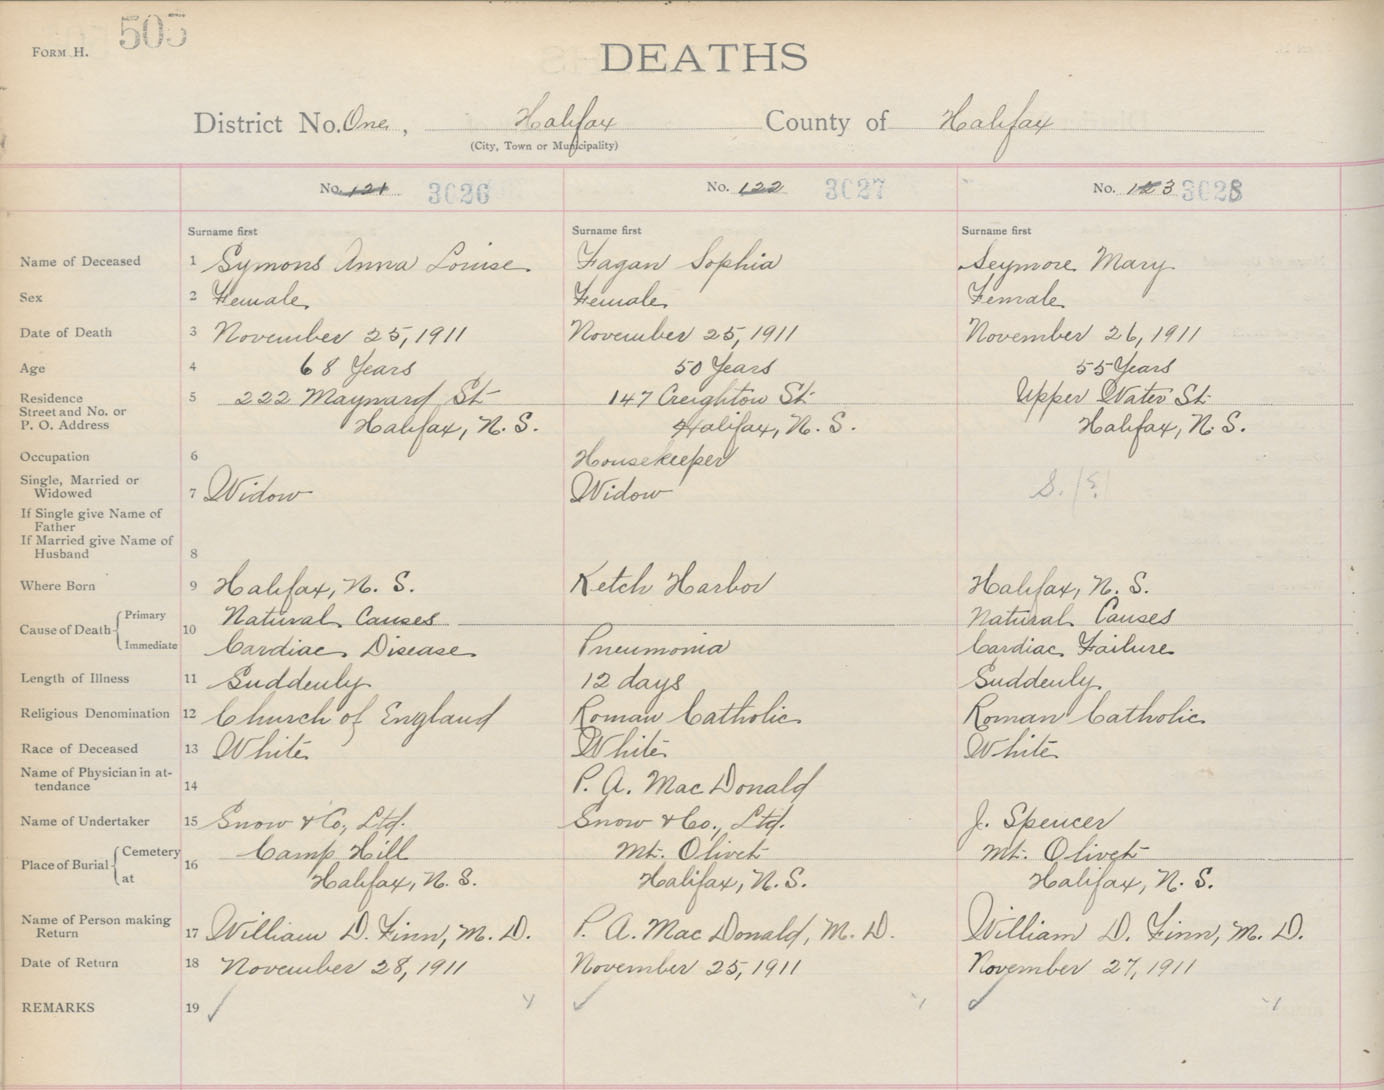 505
FORM H.
DEATHS
District No. One, Halifax County of Halifax
(City, Town or Municipality)
No. 121 3026 No. 122 3027 No. 123 3028
Surname first Surname first Surname first
Name of Deceased 1 Symons Anna Louise Fagan Sophia Seymore Mary
Sex 2 Female Female Female
Date of Death 3 November 25, 1911 November 25, 1911 November 26, 1911
Age 4 68 Years 50 Years 55 Years
Residence 5 222 Maynard St 147 Creighton St. Upper Water St.
Street and No. or
P. O. Address Halifax, N. S. Halifax, N. S. Halifax, N. S.
Occupation 6 Housekeeper
Single, Married or
Widowed 7 Widow Widow S.
If Single give Name of
Father
If Married give Name of
Husband 8
Where Born 9 Halifax, N. S. Ketch Harbor Halifax, N. S.
Primary Natural Causes Natural Causes
Cause of Death 10
Immediate Cardiac Disease Pneumonia Cardiac Failure
Length of Illness 11 Suddenly 12 days Suddenly
Religious Denomination 12 Church of England Roman Catholic Roman Catholic
Race of Deceased 13 White White White
Name of Physician in at-
tendance 14 P. A. MacDonald
Name of Undertaker 15 Snow & Co., Ltd. Snow & Co., Ltd. J. Spencer
Cemetery Camp Hill Mt. Olivet Mt. Olivet
Place of Burial 16
at Halifax, N. S. Halifax, N. S. Halifax, N. S.
Name of Person making
Return 17 William D. Finn, M. D. P. A. MacDonald, M. D. William D. Finn, M. D.
Date of Return 18 November 28, 1911 November 25, 1911 November 27, 1911
REMARKS 19